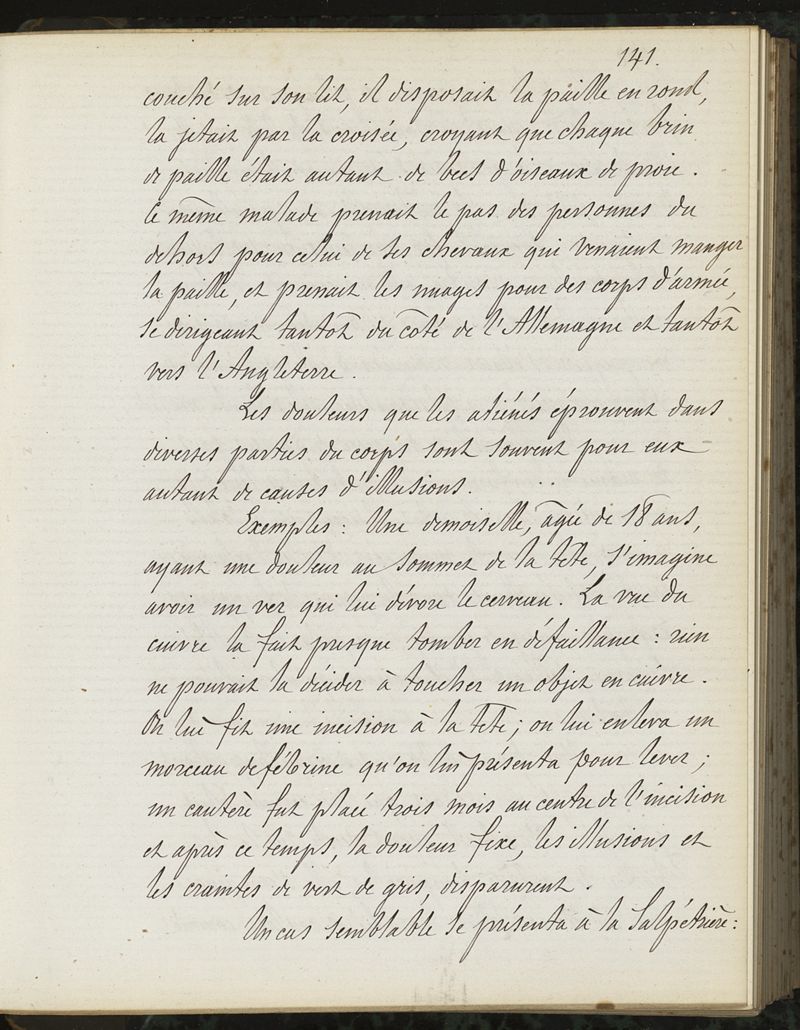 141.
couché sur son lit, il disposait la paille en rond,
la jetait par la croisée, croyant que chaque brin
de paille était autant de becs d'oiseaux de proie.
Ce même malade prenait le pas des personnes du
dehors pour celui de ses chevaux qui venaient manger
la paille, et prenait les nuages pour des corps d'armée,
se dirigeant tantôt du côté de l'Allemagne et tantôt
vers l'Angleterre.
Les douleurs que les aliénés éprouvent dans
diverses parties du corps sont souvent pour eux
autant de causes d'illusions.
Exemples : Une demoiselle, âgée de 18 ans,
ayant une douleur au sommet de la tête, s'imagine
avoir un ver qui lui dévore le cerveau. La vue du
cuivre la fait presque tomber en défaillance : rien
ne pouvait la décider à toucher un objet en cuivre.
On lui fit une incision à la tête ; on lui enleva un
morceau de fébrine qu'on lui présenta pour le ver ;
un cautère fut placé trois mois au centre de l'incision
et après ce temps, la douleur fixe, les illusions et
les craintes de vert de gris, disparurent.
Un cas semblable se présenta à la Salpétrière :